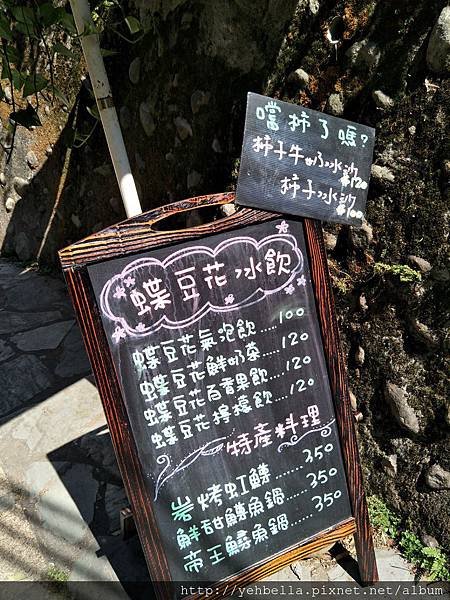 嚐柿了嗎?
柿子牛奶冰沙 $120
柿子冰沙 $100
蝶豆花冰飲
蝶豆花氣泡飲.....100
蝶豆花鮮奶茶....120
蝶豆花百香果飲....120
蝶豆花檸檬飲....120
特產料理
岩烤虹鱒.......350
鮮甜鱒魚鍋.....350
帝王鱘魚鍋.....350
http://yehbella.pixnet.net/album